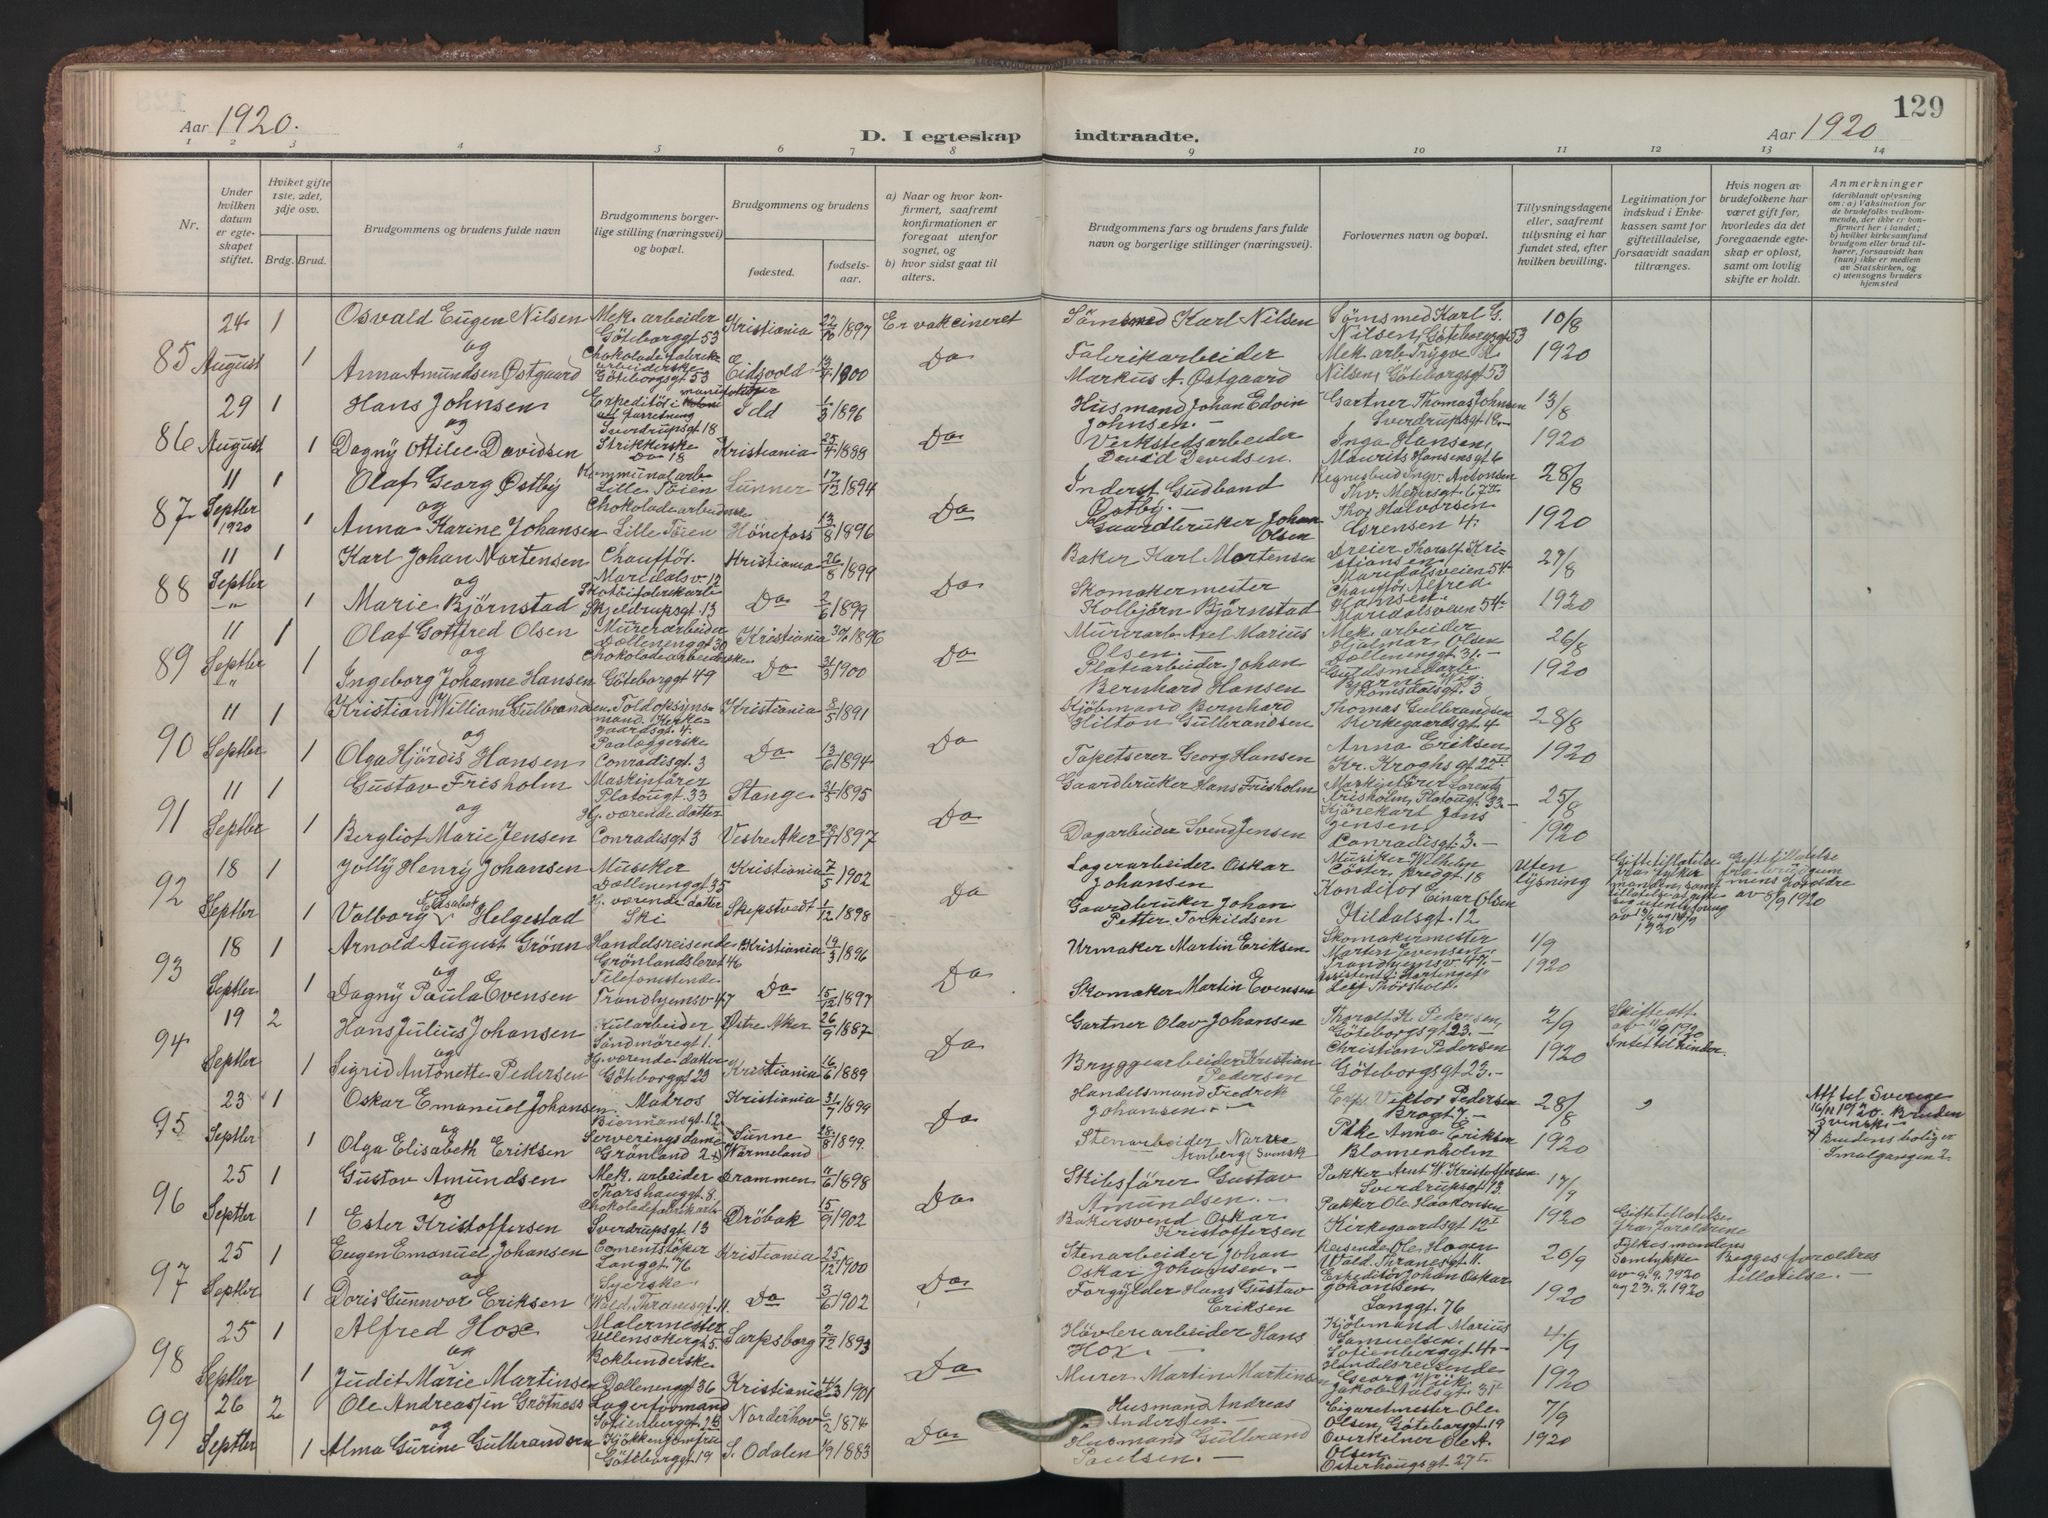 129
Aar 1920.
D. I egteskap indtraadte.
Aar 1920
1 2 3 4 5 6 7 8 9 10 11 12 13 14
Nr.
Under hvilken datum er egteskapet stiftet.
Hviket gifte 1ste, 2det, 3dje osv.
Brdg. Brud.
Brudgommens og brudens fulde navn
Brudgommens borgerlige stilling (næringsvei) og bopæl.
Brudgommens og brudens
fødested.
fødselsaar.
a) Naar og hvor konfirmert, saafremt konfirmationen er foregaat utenfor sognet, og
b) hvor sidst gaat til alters.
Brudgommens fars og brudens fars fulde navn og borgerlige stillinger (næringsvei).
Forlovernes navn og bopæl.
Tillysningsdagene eller, saafremt tillysning ei har fundet sted, efter hvilken bevilling.
Legitimation for indskud i Enkekassen samt for giftetilladelse, forsaavidt saadan tiltrænges.
Hvis nogen av brudefolkene har været gift før, hvorledes da det foregaaende egteskap er opløst, samt om lovlig skifte er holdt.
Anmerkninger
(deriblandt oplysning om: a) Vaksination for de brudefolks vedkommende, der ikke er konfirmert her i landet; b) hvilket kirkesamfund brudgom eller brud tilhører, forsaavidt han (hun) ikke er medlem av Statskirken, og c) utensogns bruders hjemsted
85 24 August 1 Osvald Eugen Nilsen Mek. arbeider Göteborggt 53 Kristiania 22/10 1897 Er vakcineret Karl Nilsen Karl G. Nilsen, Göteborgsgt 53 10/8
og
1 Anna Amundsen Østgaard Chokoladefabrikarbeiderske Göteborgsgt 53 Eidsvold 13/4 1900 Do Fabrikarbeider Markus A. Østgaard Mek. arb. Trygve R. Nilsen, Göteborgsgt 53 1920
86 29 August 1 Hans Johnsen Sverdrupsgt 18 Idd 1/3 1896 Husmand Johan Edvin Johnsen. Gartner Thomas Johnsen Sverdrupsgt 18. 13/8
og
1 Dagny Otilie Davidsen Strikkerske Do 18 Kristiania 25/4 1889 Do Verkstedsarbeider David Davidsen. Inga Hansen, Maurits Hansensgt 6 1920
87 11 Septbr 1920 1 Olaf Georg Østby Kommunalarb. Lille Töien Lunner 17/12 1894 Inderst Gudband Østby. Antonsen Thv. Meyersgt. 67 28/8
og
1 Anna Karine Johansen Chokoladearbeiderske Lille Töien Hönefoss 13/8 1896 Do Gaardbruker Johan Olsen Thor Halvorsen Sorensen 4. 1920
88 11 Septbr 1 Karl Johan Mortensen Chaufför. Maridalsv. 12 Kristiania 26/8 1899 Baker Karl Mortensen Dreier Thoralf Kristiansen Maridalsveien 54 27/8
og
1 Marie Björnstad Skjeldrupsgt. 13 Do 2/6 1899 Do Skomakermester Kolbjörn Björnstad Chaufför Alfred Hansen. Maridalsveien 54 1920
89 11 Septbr 1 Olaf Gottfred Olsen Murerarbeider Dællenenggt 30 Kristiania 1896 Murerarb. Axel Marius Olsen. Mek. arbeider Hjalmar Olsen Dællenenggt 31. 26/8
og
1 Ingeborg Johanne Hansen Chokoladearbeiderske Göteborggt 49 Do 31/3 1900 Do Platearbeider Johan Bernhard Hansen Bjarne Wig. Romsdalsgt. 3 1920
90 11 Septbr 1 Kristian William Gulbrandsen Toldopsynsmand. Kirkegaardsgt. 4. Kristiania 8/5 1891 Kjöbmand Bernhard Hilten Gulbrandsen Thomas Gulbrandsen Kirkegaardsgt. 4 28/8
og
1 Olga Hjördis Hansen Paalæggerske Conradisgt. 3 Do 13/6 1894 Do Tapetserer Georg Hansen Anna Eriksen Kr. Kroghs gt. 22 1920
91 11 Septbr 1 Gustav Frisholm Maskinförer Platougt. 33 Stange 31/8 1895 Gaardbruker Hans Frisholm Maskinförer Lorentz Frisholm, Platougt. 33. 25/8
og
1 Bergliot Marie Jensen Hj. værende datter Conradisgt 3 Vestre Aker 1897 Do Dagarbeider Svend Jensen Kjörekarl Jens Jensen, Conradisgt. 3. 1920
92 18 Septbr 1 Jolly Henry Johansen Musiker Dællenenggt 35 Kristiania 7/5 1902 Lagerarbeider Oskar Johansen Musiker Wilhelm Cöster, Bredgt. 18 Uten lysning Giftetillatelse fra fylkesmanden samt tillatelse Giftetillatelse fra brudgommens foreldre av 5/9 1920
og
1 Valborg Elisabet Helgestad Hj. værende datter Ski Skeptvedt 1/12 1898 Do Gaardbruker Johan Petter Torkildsen Konditor Einar Olsen Hildalsgt. 12 1920
93 18 Septbr 1 Arnold August Grönn Handelsreisende Grönlandsleret 46 Kristiania 19/3 1896 Urmaker Martin Eriksen Skomakermester Martin Evensen, Trondhjemsv 47. 1/9
og
1 Dagny Paula Evensen Telefonistinde Trondhjemsv 47 Do 15/12 1897 Do Skomaker Martin Evensen Leif Thorsholt. 1920
94 19 Septbr 2 Hans Julius Johansen Kularbeider Söndmöregt 1. Østre Aker 26/9 1887 Gartner Olav Johansen Thoralf K. Pedersen, Göteborgsgt 23. 2/9 Skifteatt av 1/9 1920 Intet til hinder.
og
1 Sigrid Antonette Pedersen Hj. værende datter Göteborggt 23 Kristiania 16/6 1889 Do Bryggearbeider Kristian Pedersen Christian Pedersen Göteborgsgt 23. 1920
95 23 Septbr 1 Oskar Emanuel Johansen Matros Biermansgt. 12 Kristiania 31/7 1899 Handelsmand Fredrik Johansen. Viktor Pedersen Brogt 7. 28/8 Att til Sverige 16/11 1920. Bruden svensk
og
1 Olga Elisabeth Eriksen Serveringsdame Grönland 2 Sunne Wärmeland 28/8 1899. Do Stenarbeider (Svensk) Pike Anna Eriksen Blomenholm 1920 Brudens bolig er Smalgangen 2.
96 25 Septbr 1 Gustav Amundsen Mek. arbeider Thorshauggt. 8. Drammen 11/6 1898 Skibsförer Gustav Amundsen. Pakker Arnt W. Kristoffersen Sverdrupsgt 13. 17/9
og
1 Ester Kristoffersen Chokoladefabrikarb. Sverdrupsgt. 13 Dröbak 15/9 1902 Do Bakersvend Oskar Kristoffersen Pakker Ole Haakonsen Kirkegaardsgt 12 1920
97 25 Septbr 1 Eugen Emanuel Johansen Cementstöper Langgt 76 Kristiania 25/12 1900 Stenarbeider Johan Oskar Johansen. Reisende Ole Hagen Wald. Thranesgt. 11. 20/9 Giftetillatelse fra foreldrene Fylkesmandens Samtykke av 9. 9. 1920 og 23. 9. 1920 Begges foreldres tillatelse.
og
1 Doris Gunnvor Eriksen Syerske Wald. Thranesgt. 11. Do 3/6 1902 Do Forgylder Hans Gustav Eriksen Expeditör Johan Oskar Johansen Langgt. 76 1920
98 25 Septbr 1 Alfred Hox Malermester Ullensakergt 5. Sarpsborg 2/12 1893 Hövleriarbeider Hans Hox. Kjöbmand Marius Samuelsen. Sofienberggt. 4. 4/9
og
1 Judit Marie Martinsen Bokbinderske Dællenenggt 36 Kristiania 1901 Do Murer Martin Martinsen Handelsreisende Georg Wiik Jakob Aalsgt. 3 1920
99 26 Septbr 2 Ole Andreassen Grötnæss Lagerformand Sofienberggt. Norderhov 6/2 1874 Husmand Andreas Andersen. Cigaretmester Ole Olsen, Göteborggt 19 7/9
og
1 Alma Gurine Gulbrandsen Kjökkenjomfru Göteborggt 19 S. Odalen 1/9 1883 Do Husmand Gulbrand Paulsen. Overkelner Ole A. Olsen Osterhaugsgt 27 1920